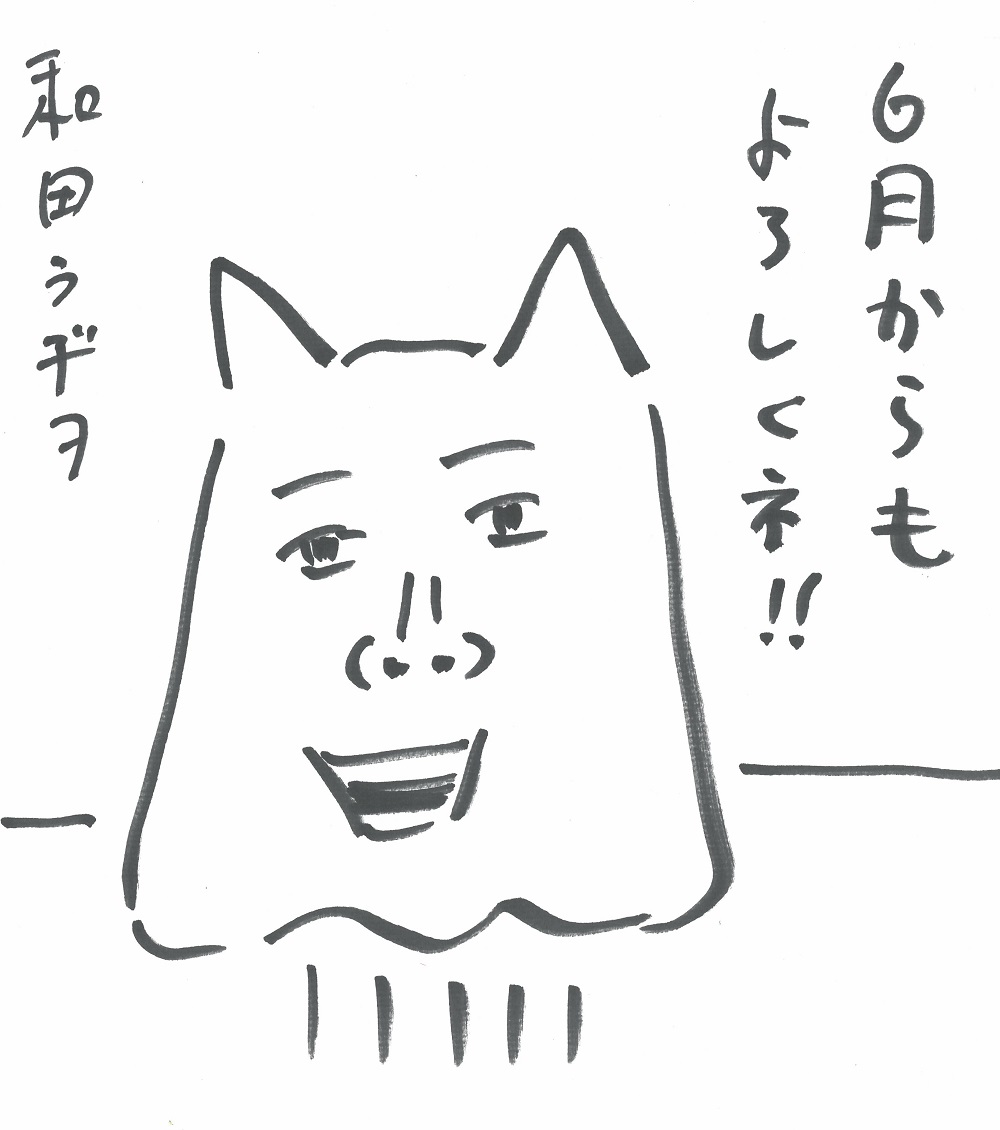 6月からも
よろしくネ!!
和田ラヂヲ